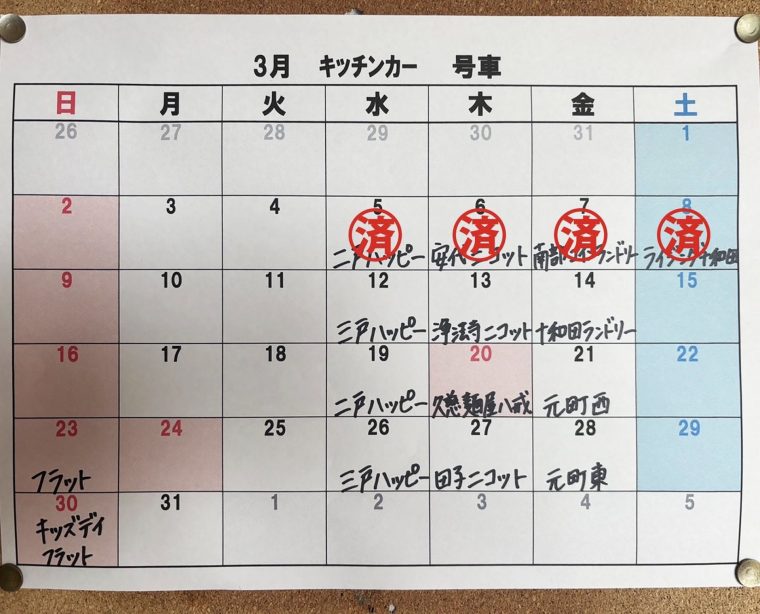 3月 キッチンカー 号車
日 月 火 水 木 金 土
26 27 28 29 30 31 1
2 3 4 5 6 7 8
済 済 済 済
二戸ハッピー 安代ニコット 南部 ランドリー ライジング十和田
9 10 11 12 13 14 15
三戸ハッピー 浄法寺ニコット 十和田ランドリー
16 17 18 19 20 21 22
二戸ハッピー 久慈麺屋八戒 元町西
23 24 25 26 27 28 29
フラット 三戸ハッピー 田子ニコット 元町東
30 31 1 2 3 4 5
キッズデイ
フラット